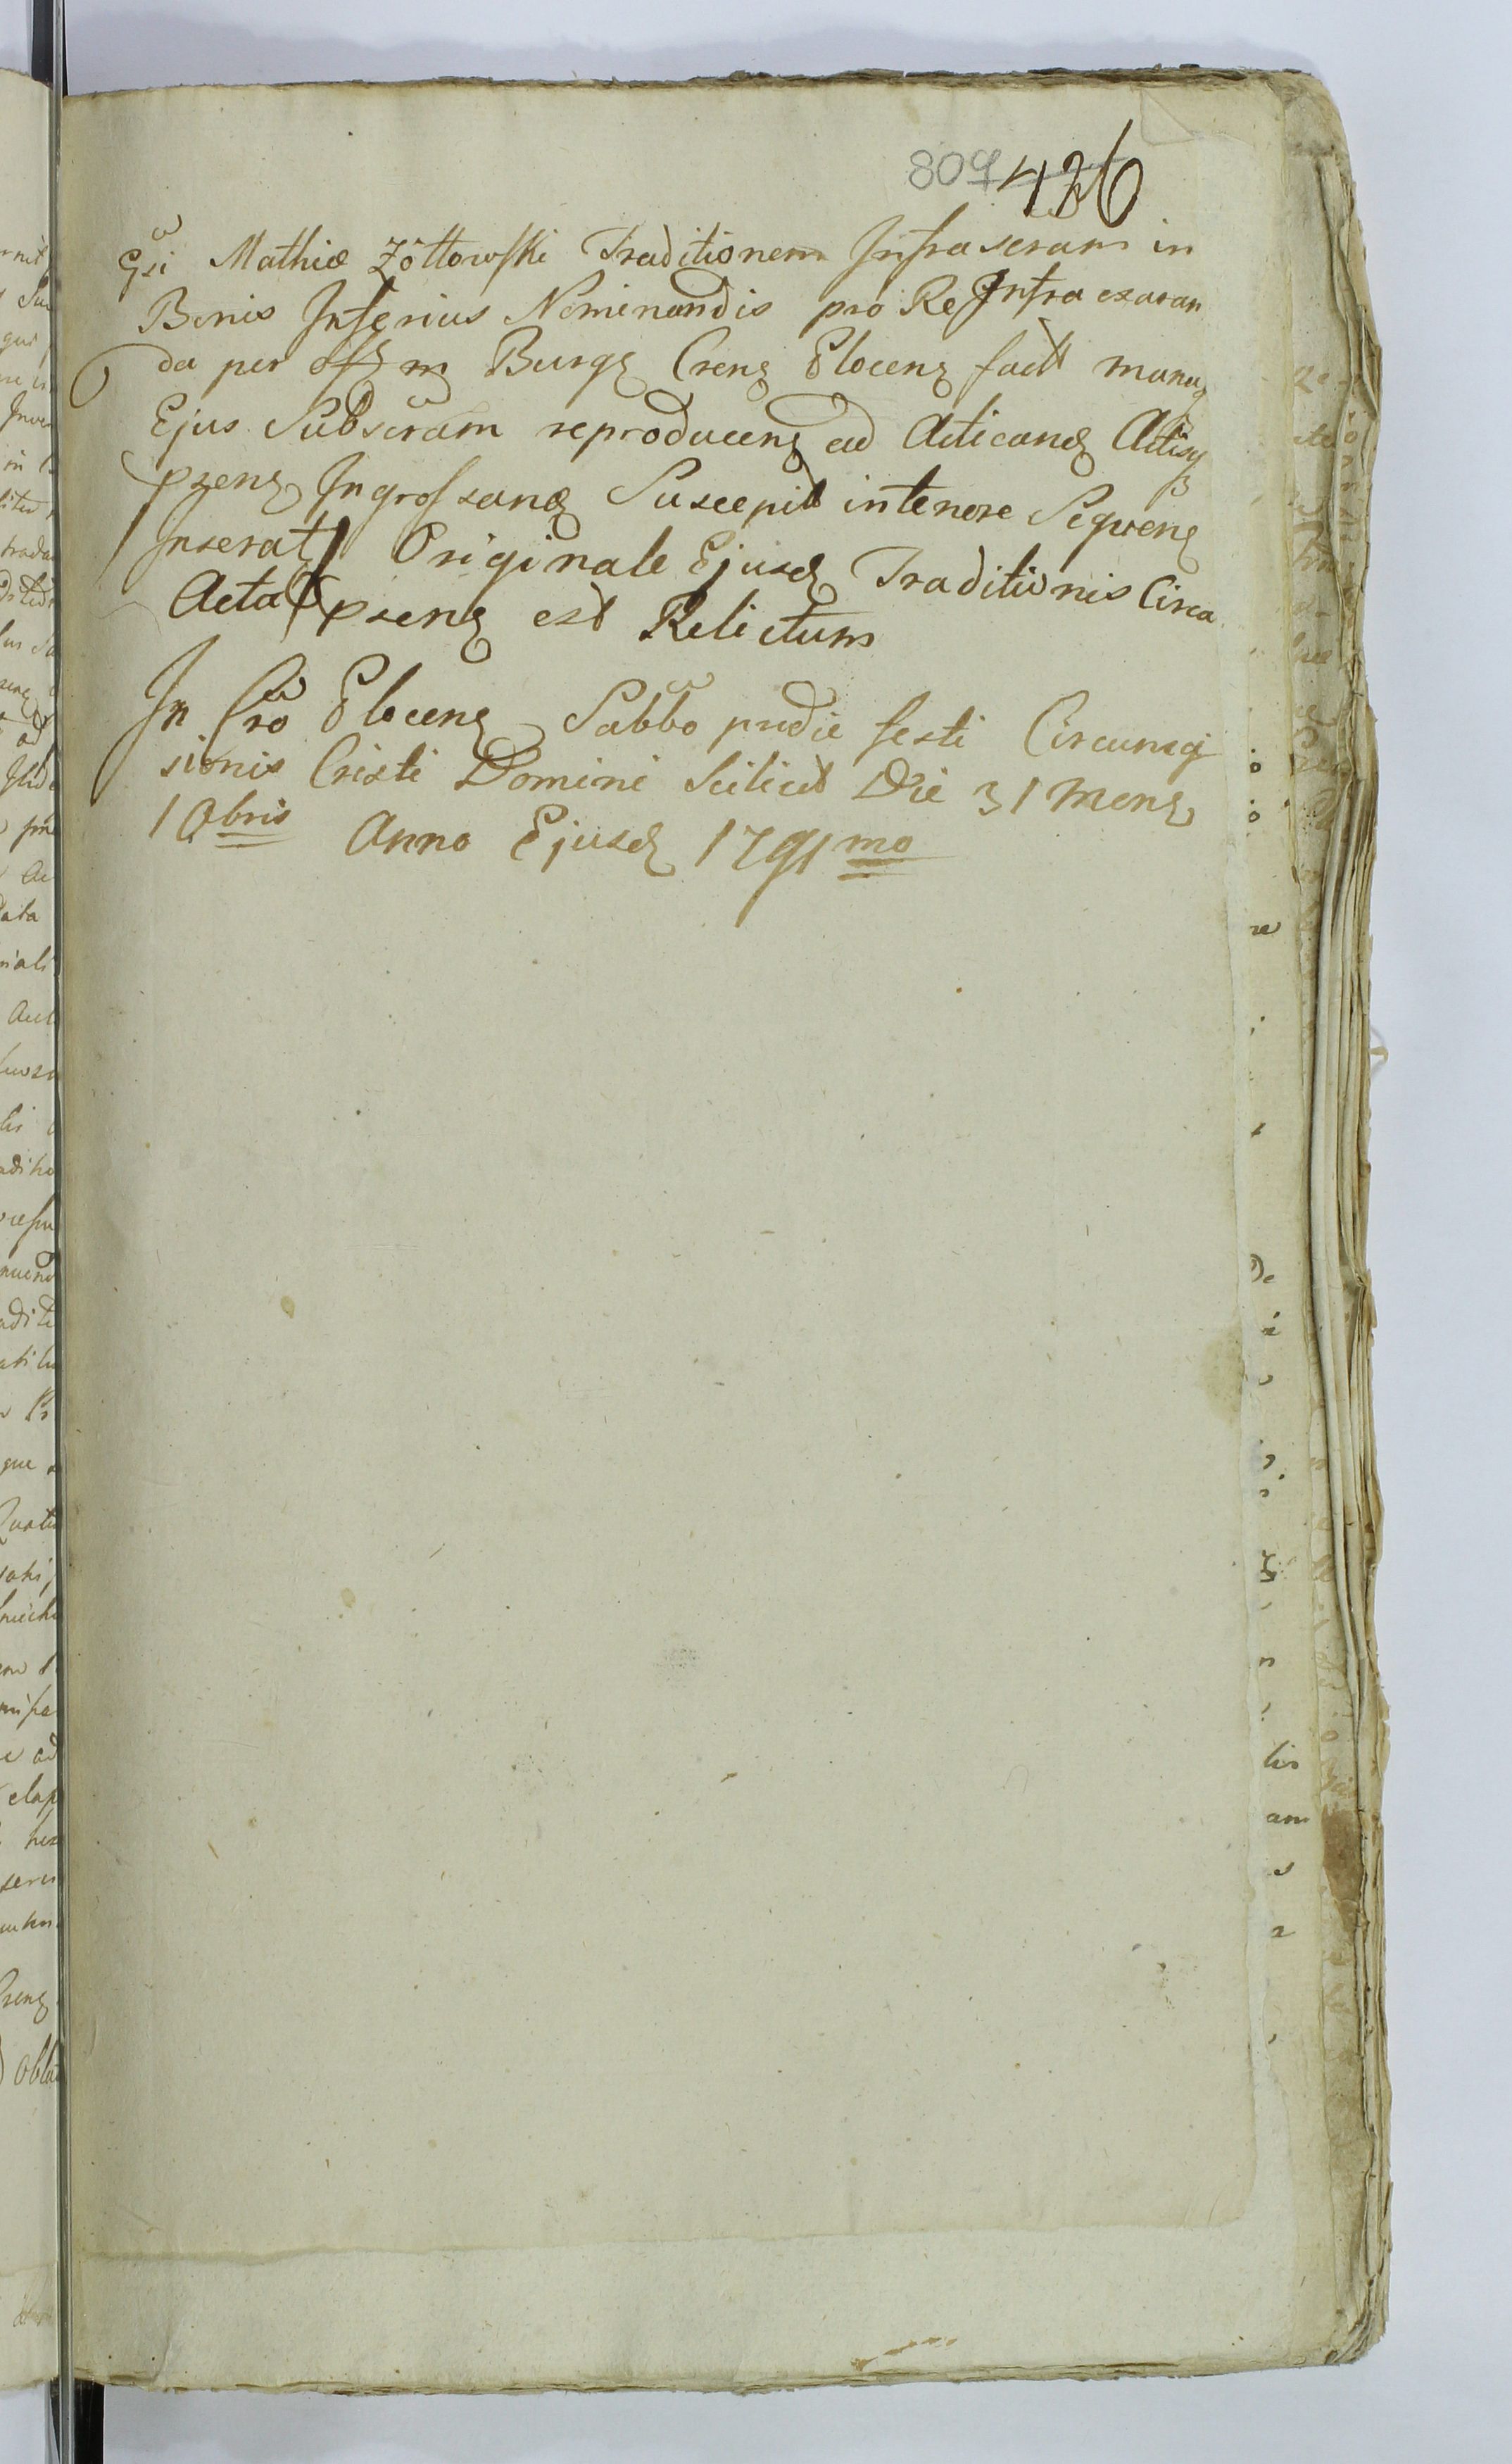 809 436
Gsi Mathiæ Zółtowski Traditionem Infrascram in
Bonis Inferius Nominandis pro Re Infra exaran
da per Burg Crens Plocens fact manuq
Ejus Subscram reproducens ad Acticand Actisq
psens Ingrossand Suscepit in tenore Sequens
Inserat Originale Ejusd Traditionis Circa
Acta psens est Relictum
In Cro Plocens Sabbo pridie festi Circumci
sionis Cristi Domini Scilicet Die 31 Mens
10bris Anno Ejusd 1791mo